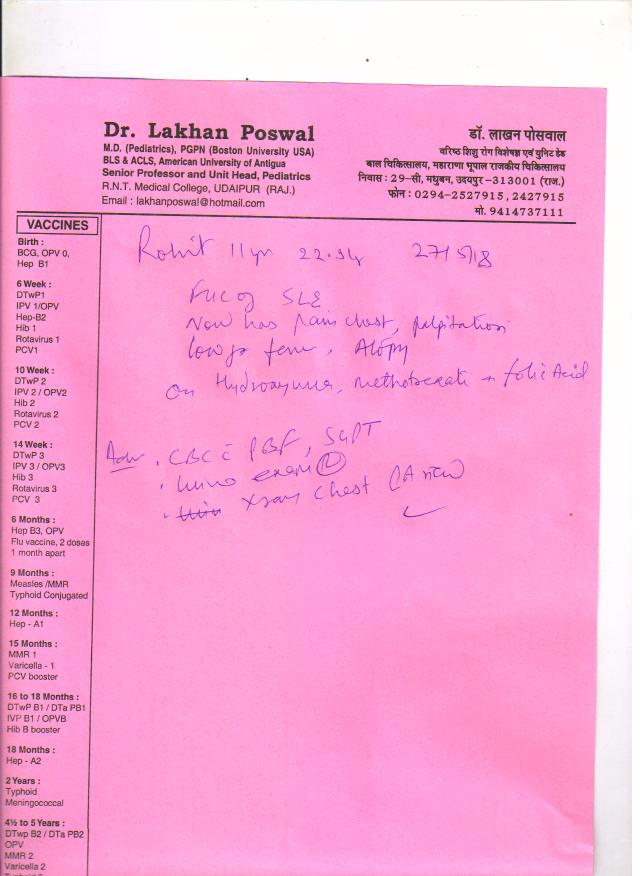 Dr. Lakhan Poswal
M.D. (Pediatrics), PGPN (Boston University USA)
BLS & ACLS, American University of Antigua
Senior Professor and Unit Head, Pediatrics
R.N.T. Medical College, UDAIPUR (RAJ.)
Email : lakhanposwal@hotmail.com
डॉ. लाखन पोसवाल
वरिष्ठ शिशु रोग विशेषज्ञ एवं युनिट हेड
बाल चिकित्सालय, महाराणा भूपाल राजकीय चिकित्सालय
निवास : 29-सी, मधुबन, उदयपुर-313001 (राज.)
फोन : 0294-2527915, 2427915
मो. 9414737111
VACCINES
Birth :
BCG, OPV 0,
Hep B1
6 Week :
DTwP1
IPV 1/OPV
Hep-B2
Hib 1
Rotavirus 1
PCV1
10 Week :
DTwP 2
IPV 2 / OPV2
Hib 2
Rotavirus 2
PCV 2
14 Week :
DTwP 3
IPV 3 / OPV3
Hib 3
Rotavirus 3
PCV 3
6 Months :
Hep B3, OPV
Flu vaccine, 2 doses
1 month apart
9 Months :
Measles /MMR
Typhoid Conjugated
12 Months :
Hep - A1
15 Months :
MMR 1
Varicella - 1
PCV booster
16 to 18 Months :
DTwP B1 / DTa PB1
IVP B1 / OPVB
Hib B booster
18 Months :
Hep - A2
2 Years :
Typhoid
Meningococcal
4½ to 5 Years :
DTwp B2 / DTa PB2
OPV
MMR 2
Varicella 2
Rohit 11 yr 27/5/18
SLE
Now has pain chest, palpitation
low gr
On methotrexate + folic Acid
Adv . CBC c PBF, SGPT
. exam
. Xray Chest